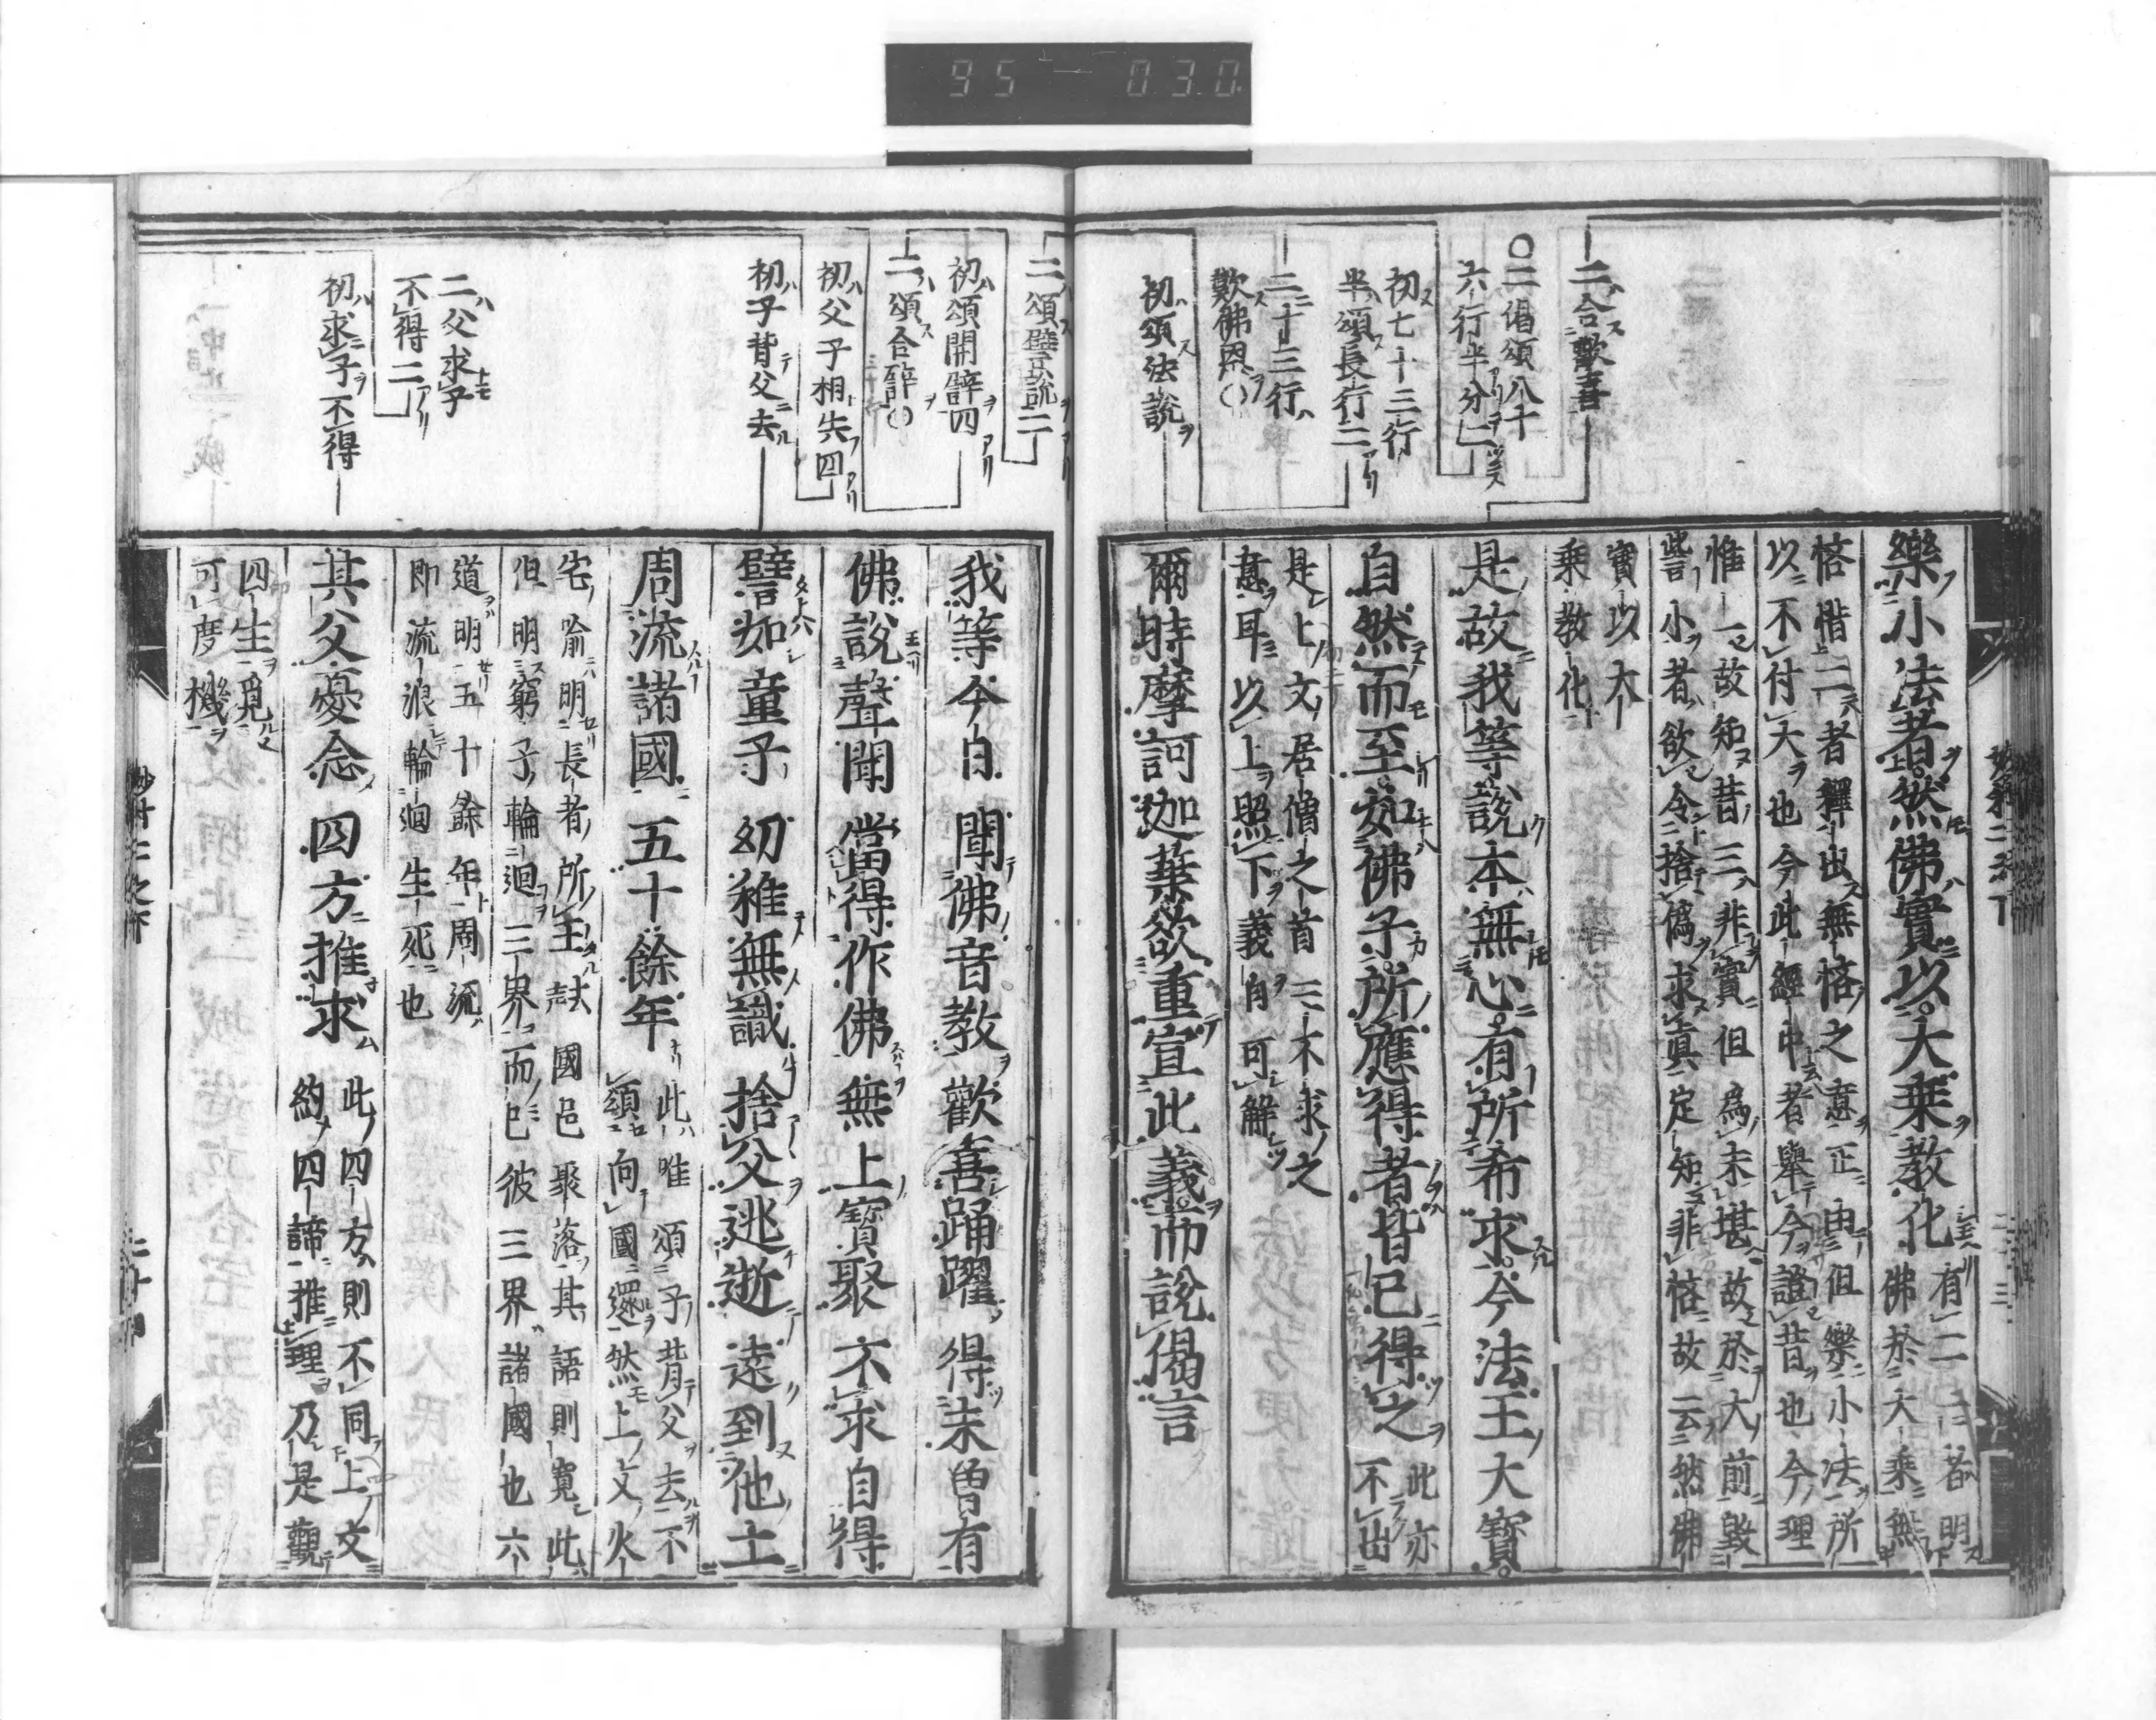 95-030
二合歎喜
○二偈頌八十
六行半分二
初七十三行
半頌長行二
二十三行
歎佛恩
初頌法說
樂小法者然佛實以大乘教化
有二二者明
佛於大乘無
悋惜二者釋出無悋之意正由但樂小法所
以不付大也今此經中者舉今證昔也今理
惟一故知昔三非實但為未堪故於大前毀
訾小者欲令捨偽求真定知非悋故云然佛
實以大
乘教化
是故我等說本無心有所希求今法王大寶
自然而至如佛子所應得者皆已得之
此亦
不出
是上文居僧之首三不求之
意耳以上照下義自可解
爾時摩訶迦葉欲重宣此義而說偈言
二頌譬說二
初頌開譬四
二頌合譬
初父子相失四
初子背父去
二父求子
不得二
初求子不得
我等今日 聞佛音教 歡喜踊躍 得未曾有
佛說聲聞 當得作佛 無上寶聚 不求自得
譬如童子 幼稚無識 捨父逃逝 遠到他土
周流諸國 五十餘年
此唯頌子背父去不
頌向國還然上文火
宅喻明長者所王故國邑聚落其語則寬此
但明窮子輪迴三界而已彼三界諸國也六
道明五十餘年周流
即流浪輪迴生死也
其父憂念 四方推求
此四方則不同上文
約四諦推理乃是觀
四生覓
可度機